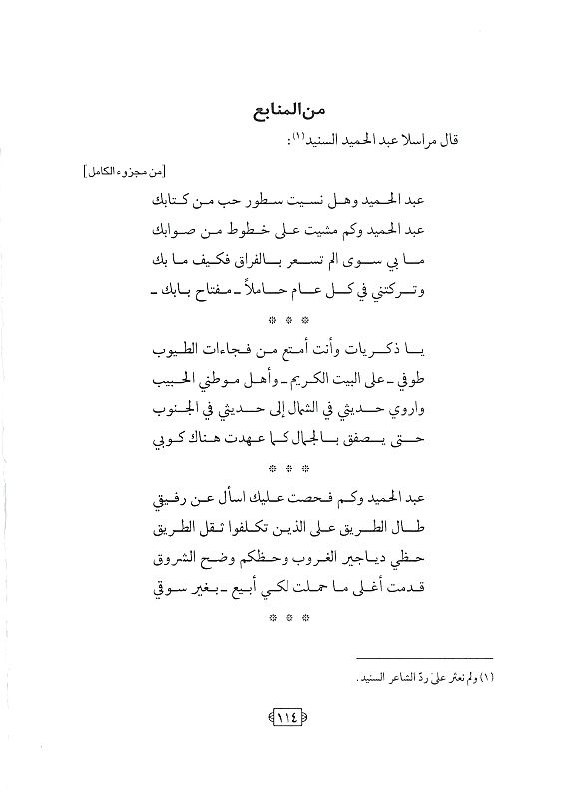 من المنابع
قال مراسلا عبد الحميد السنيد(١):
[من مجزوء الكامل]
عبد الحميد وهل نسيت سطور حب من كتابك
عبد الحميد وكم مشيت على خطوط من صوابك
ما بي سوى الم تسعر بالفراق فكيف ما بك
وتركتني في كل عام حاملاً ـ مفتاح بابك ـ
* * *
يا ذكريات وأنت أمتع من فجاءات الطيوب
طوفي ـ على البيت الكريم ـ وأهل موطني الحبيب
واروي حديثي في الشمال إلى حديثي في الجنوب
حتى يصفق بالجمال كما عهدت هناك كوبي
* * *
عبد الحميد وكم فحصت عليك اسأل عن رفيقي
طال الطريق على الذين تكلفوا ثقل الطريق
حظي دياجير الغروب وحظكم وضح الشروق
قدمت أغلى ما حملت لكي أبيع ـ بغير سوقي
* * *
(١) ولم نعثر على ردّ الشاعر السنيد.
١١٤